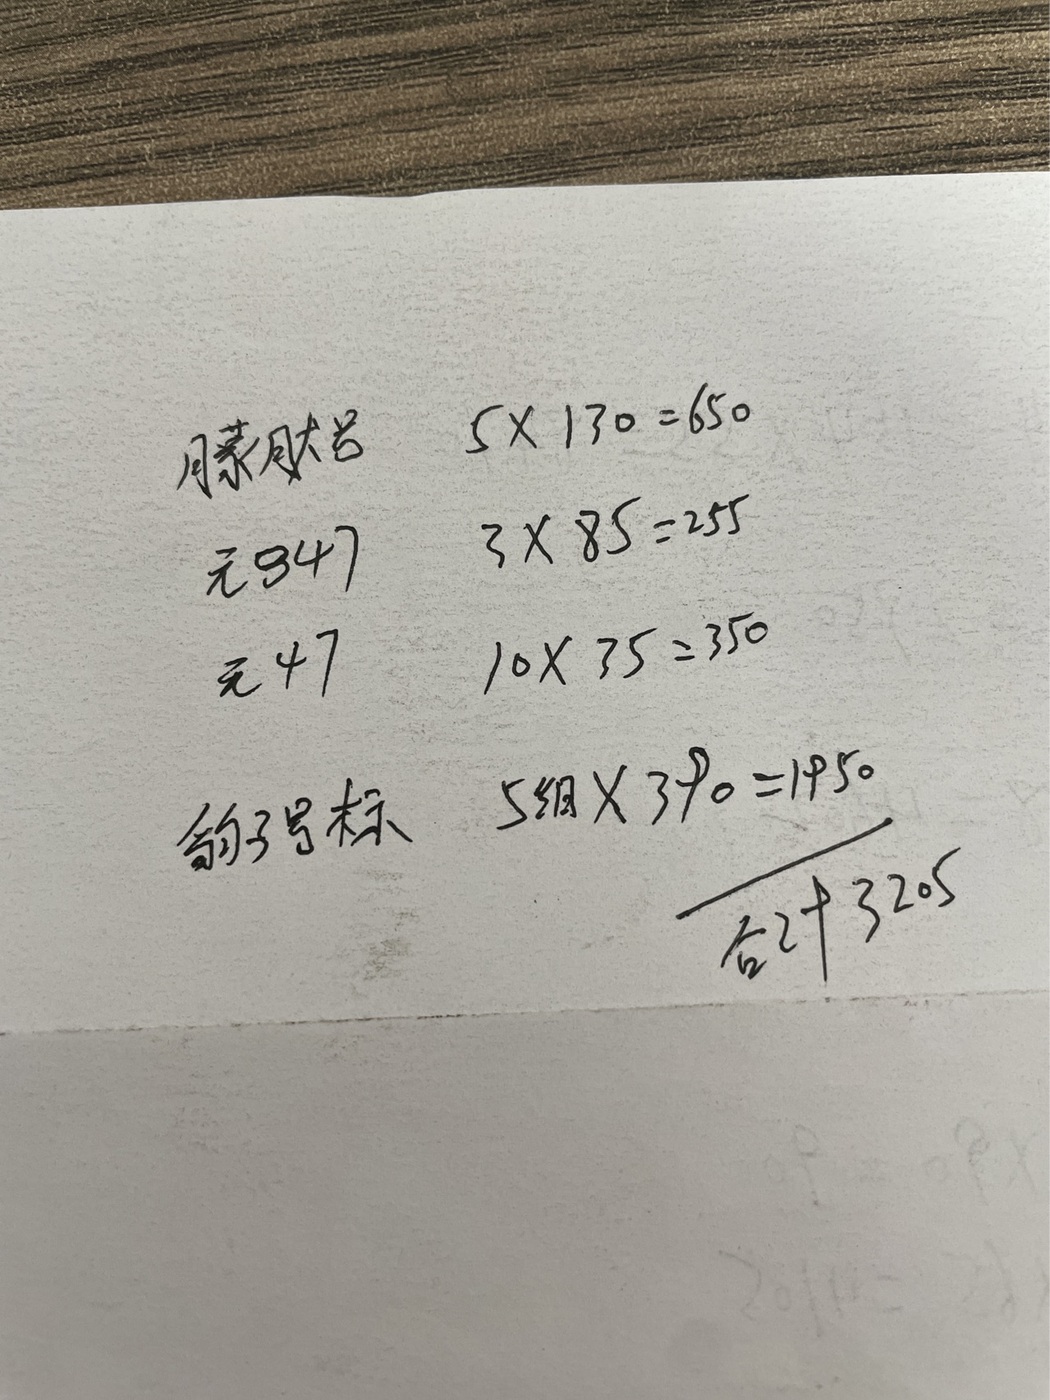 5×130=650
元347 3×85=255
元47 10×35=350
豹子号标 5组×390=1950
合计3205
×90=90